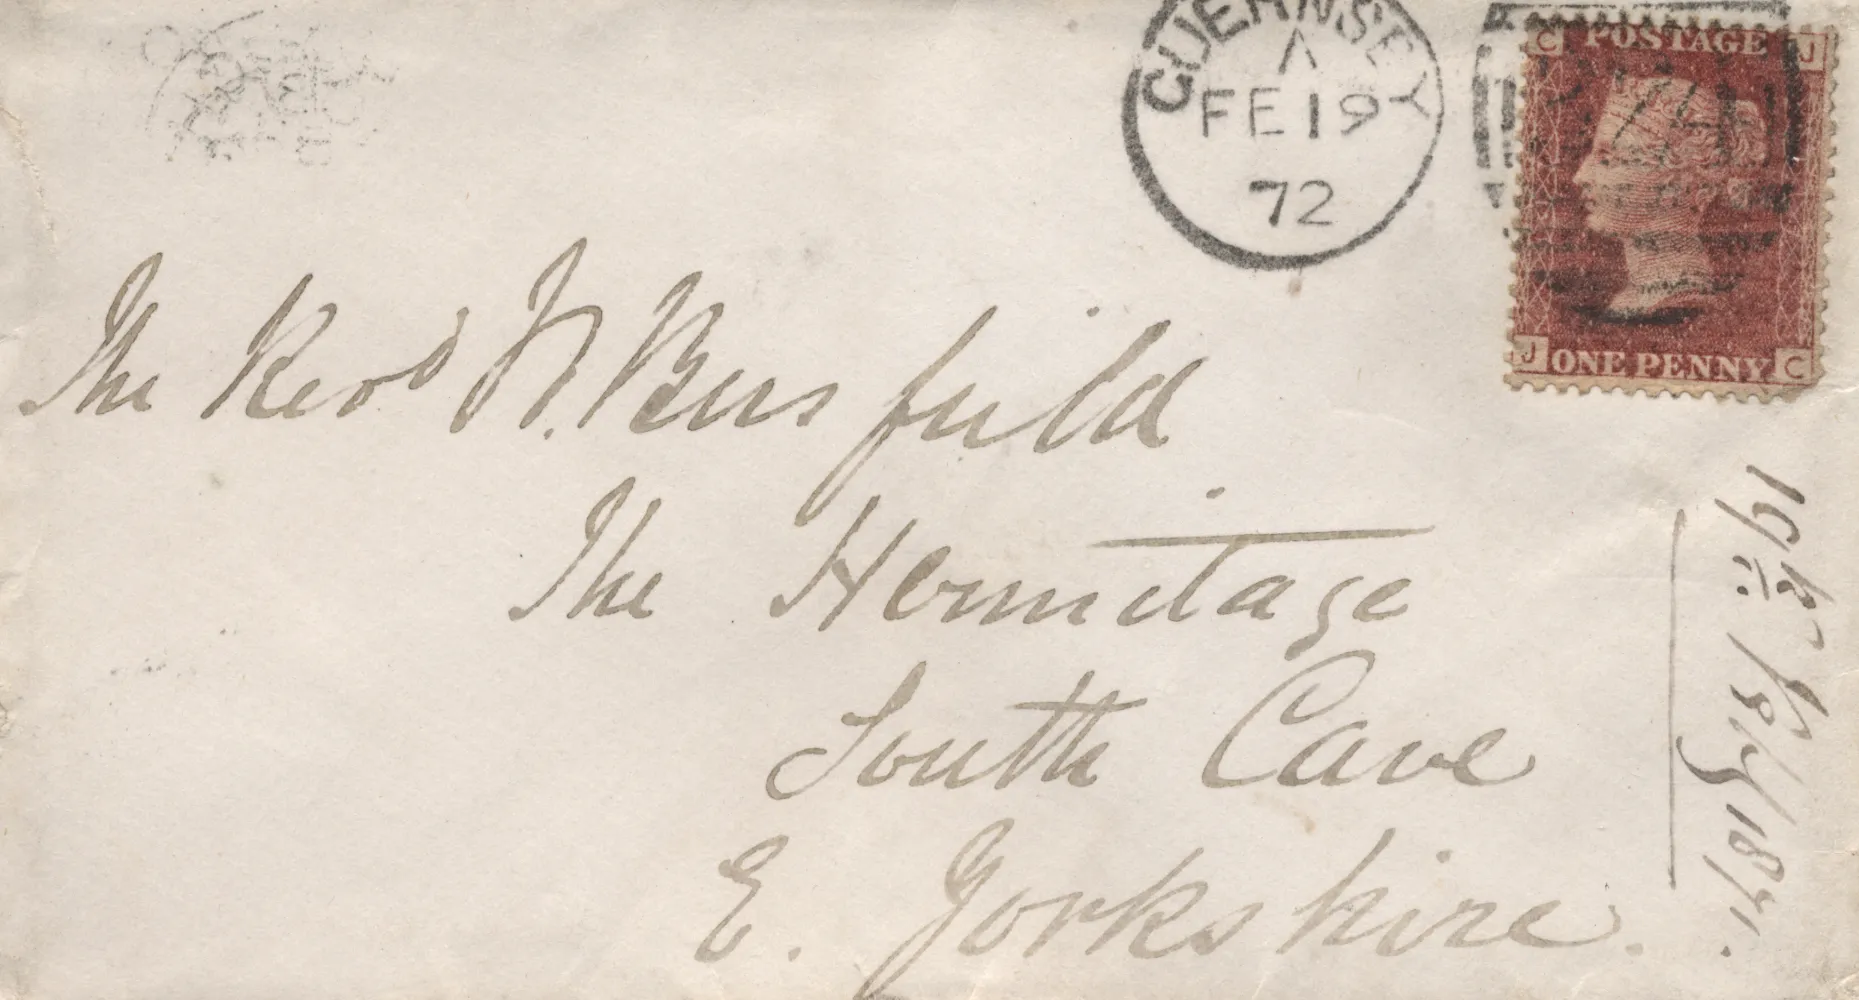 GUERNSEY
A
FE 19
72
C POSTAGE J
324
J ONE PENNY C
The Revd W. Busfeild
The Hermitage
South Cave
E. Yorkshire.
19th Feby 1872.